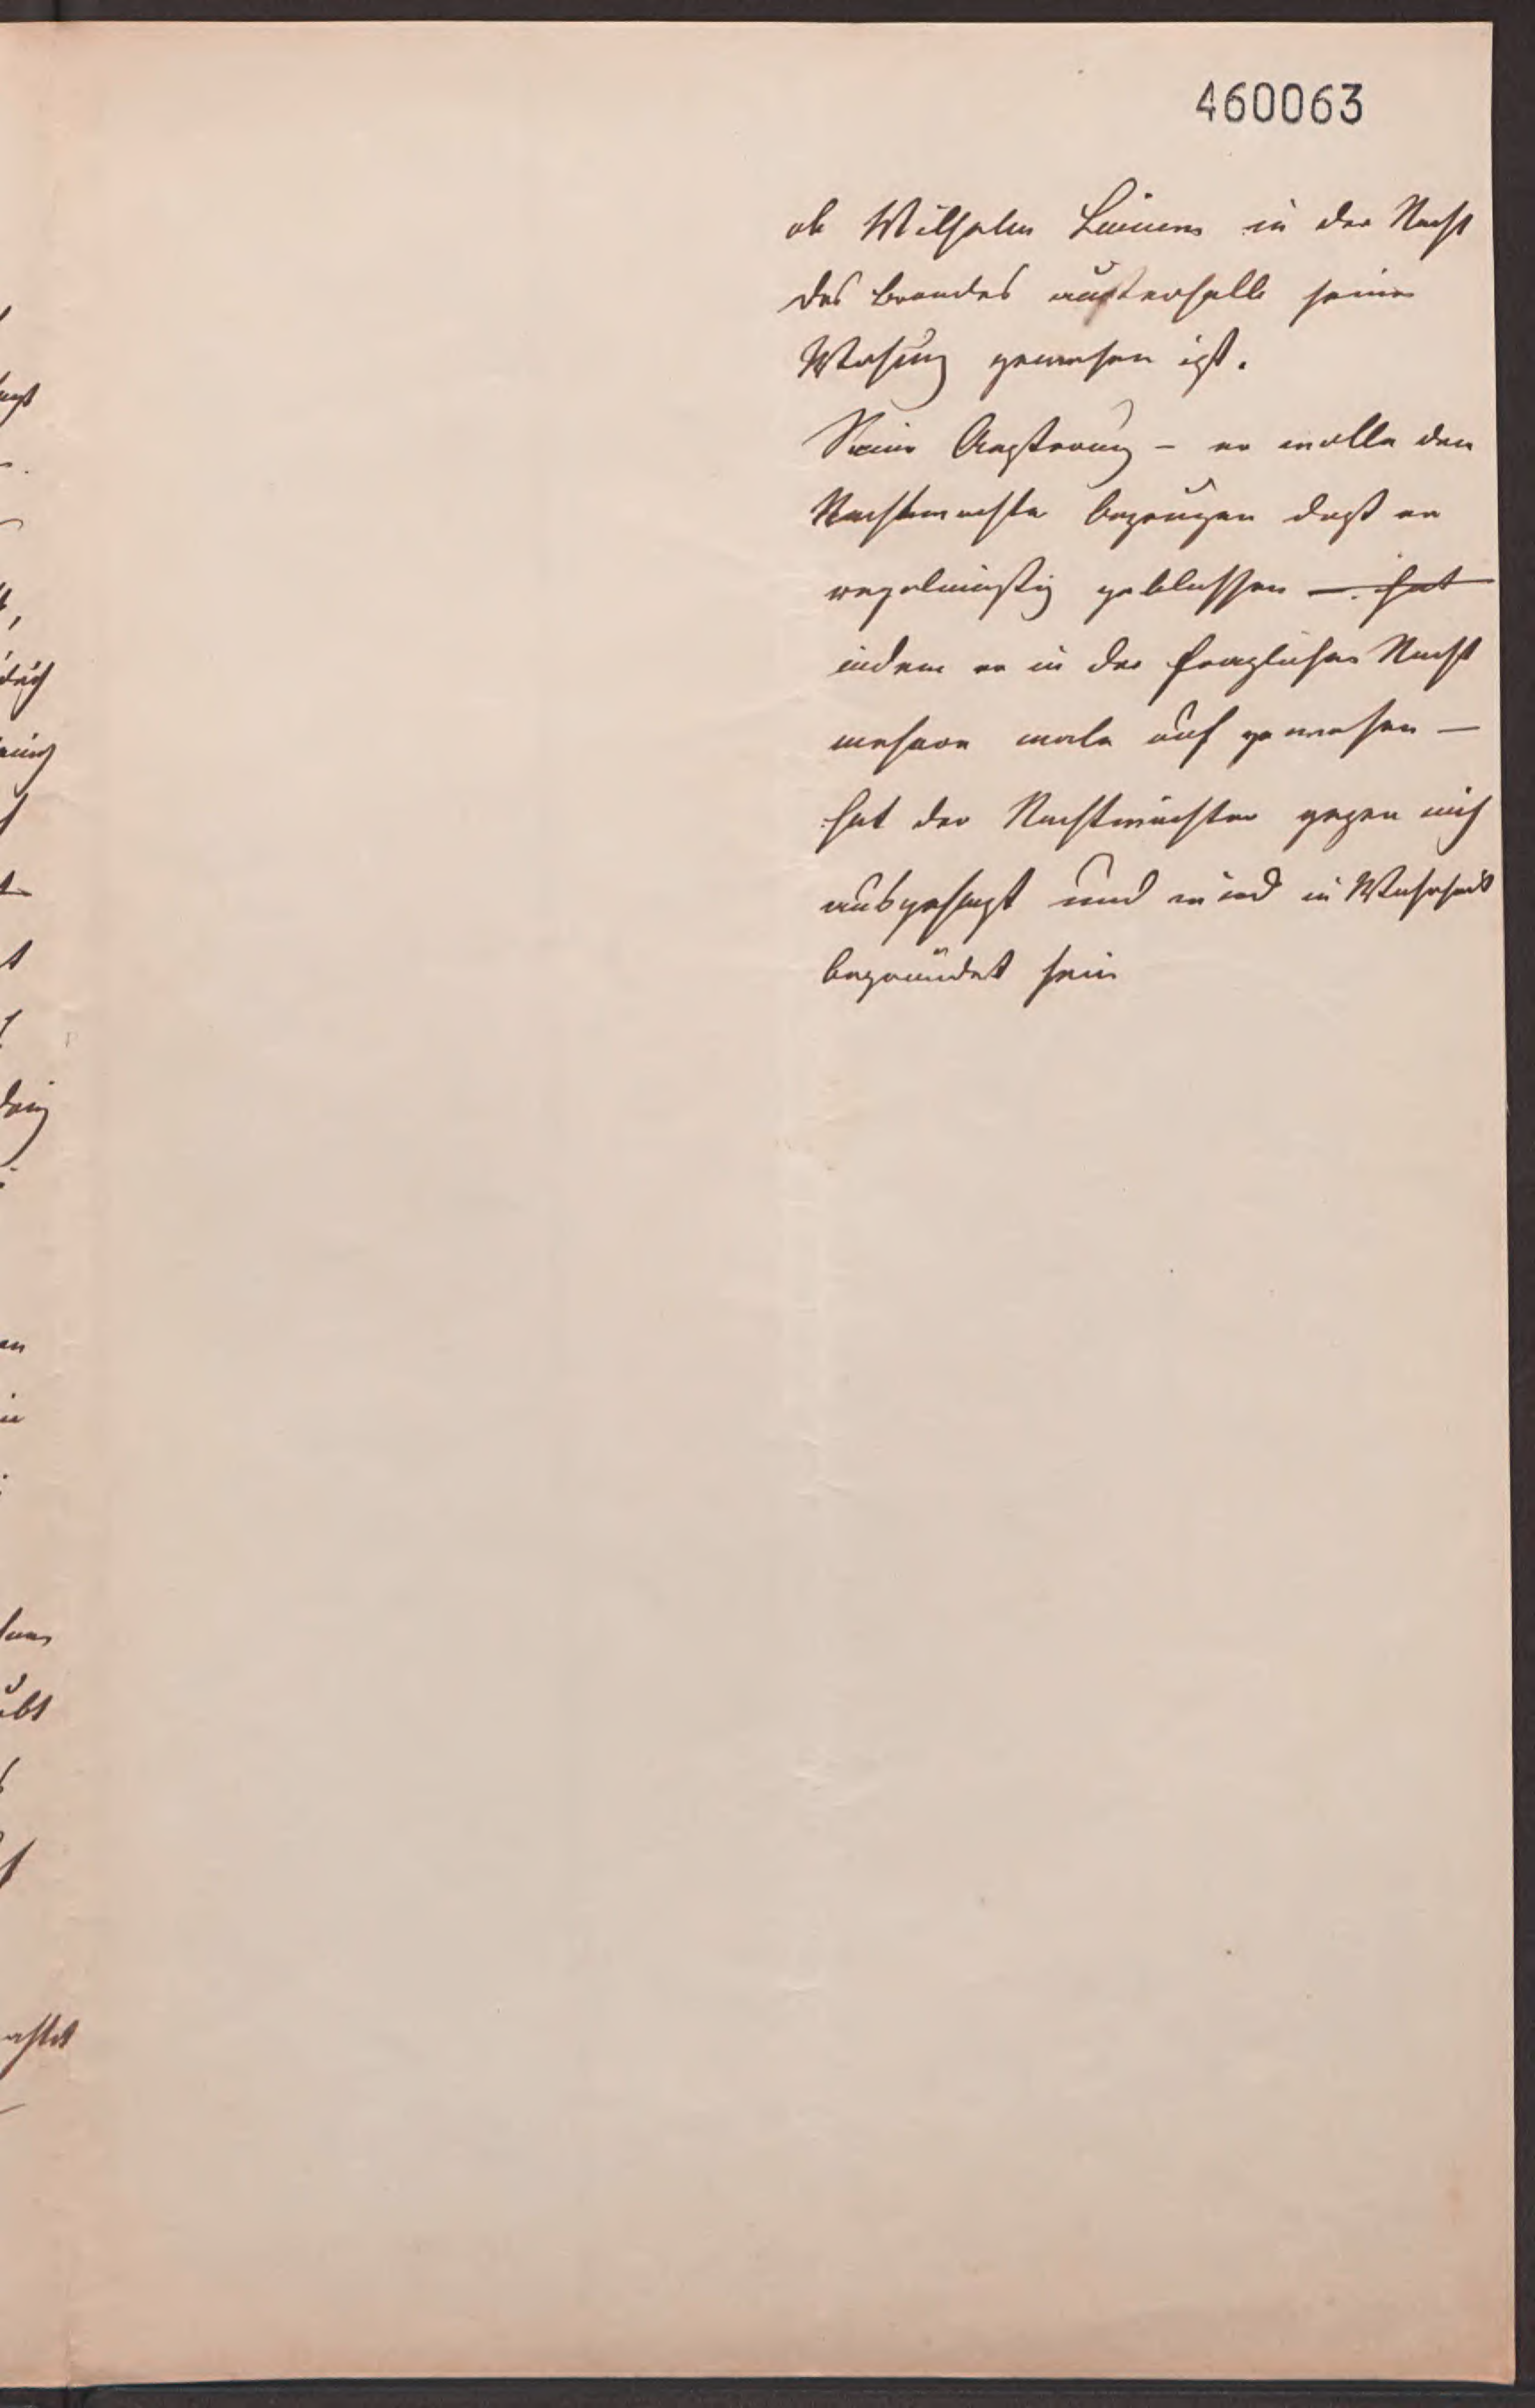 460063
ob Wilhelm in der Nacht
des Brandes außerhalb seiner
Wohung gewesen ist.
Seine Aeußerung – er wolle den
Nachtwachte bezeugen daß er
regelmäßig geblassen – hat
indem er in der fraglichen Nacht
mehere male auf gewesen –
hat der Nachtwächter gegen mich
ausgesagt und wird in Wahrheit
begründet sein